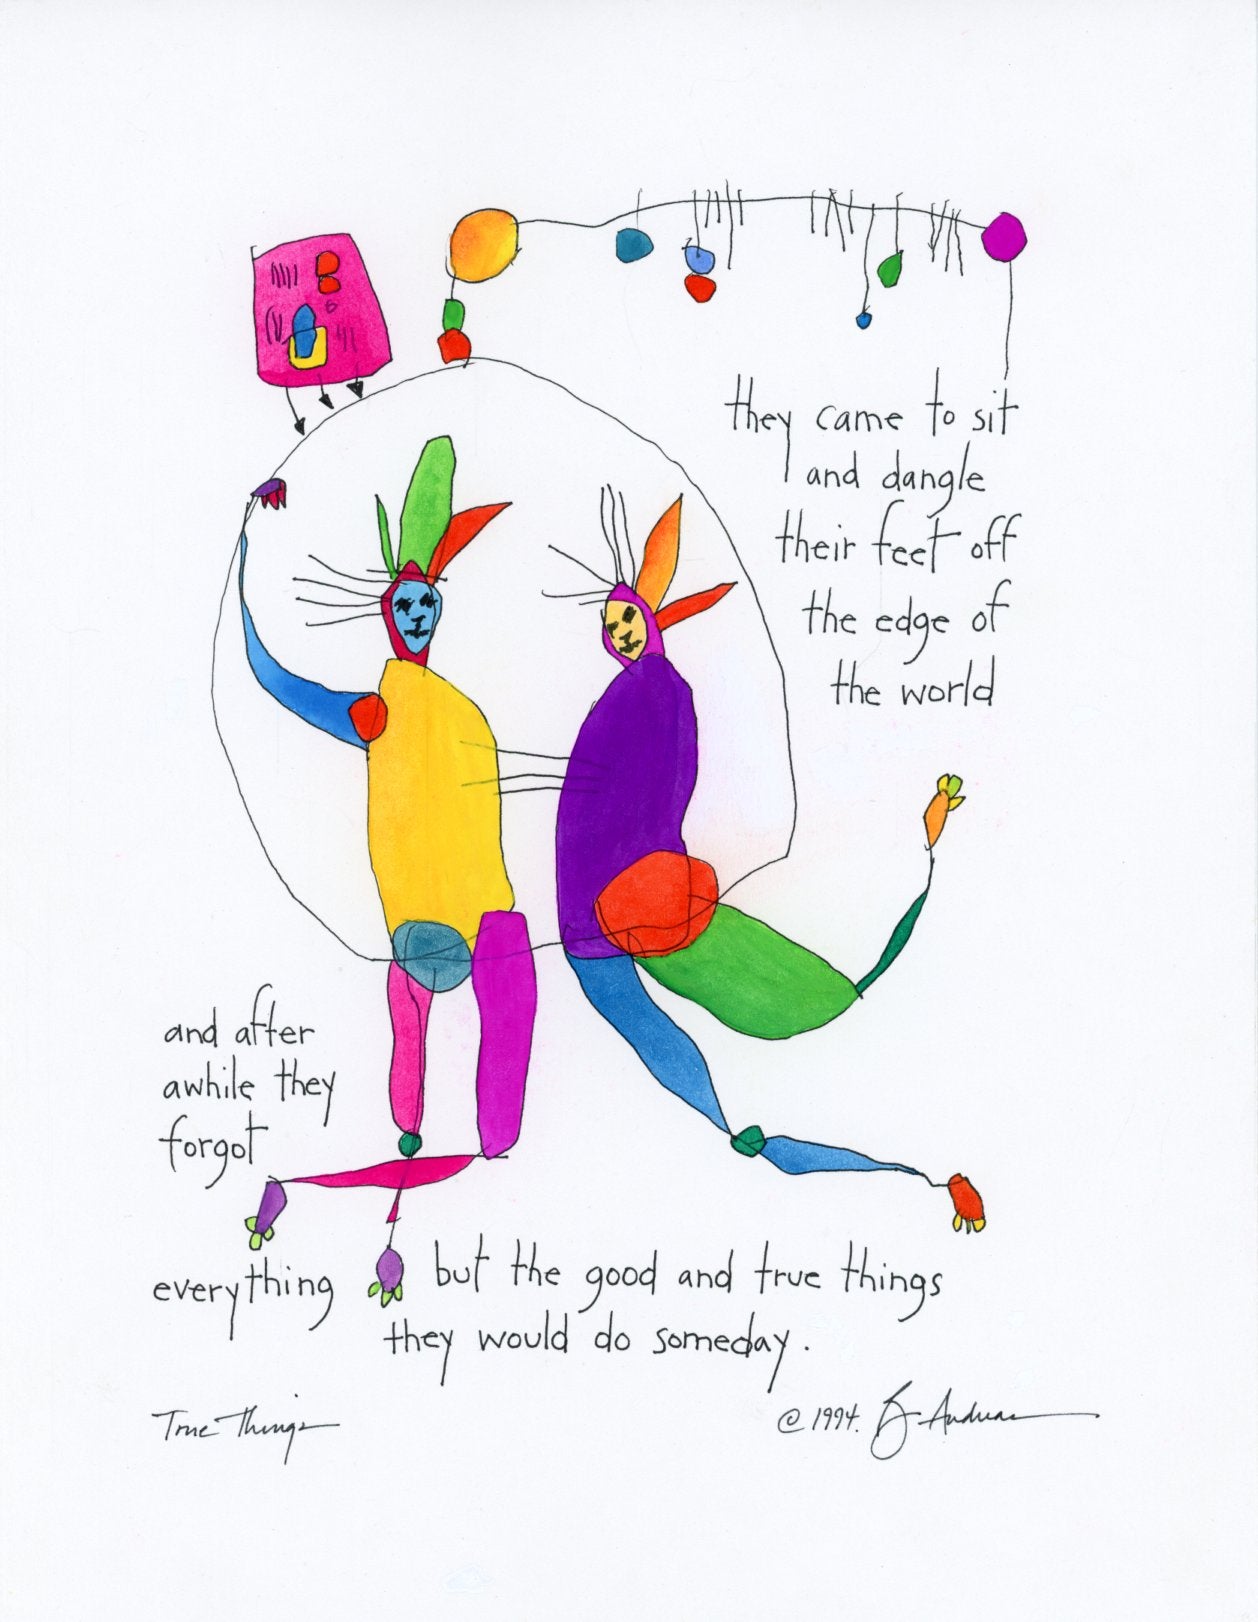 they came to sit
and dangle
their feet off
the edge of
the world
and after
awhile they
forgot
everything but the good and true things
they would do someday.
True Things
© 1994. B Andreas